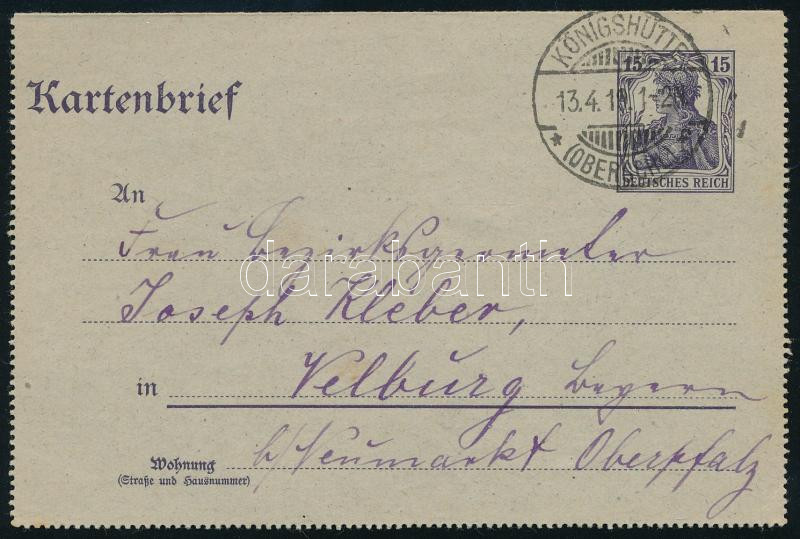 KÖNIGSHÜTTE
15 15
13.4.18. 1-2N.
* (OBERSCHL.)
DEUTSCHES REICH
Kartenbrief
An
Frau Bezirksgeometer
darabanth
Joseph Kleber,
in Velburg Bayern
Wohnung b/Neumarkt Oberpfalz
(Straße und Hausnummer)